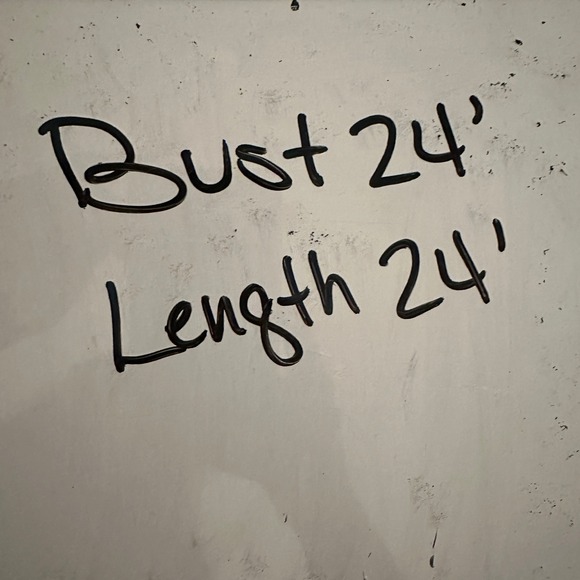 Bust 24'
Length 24'